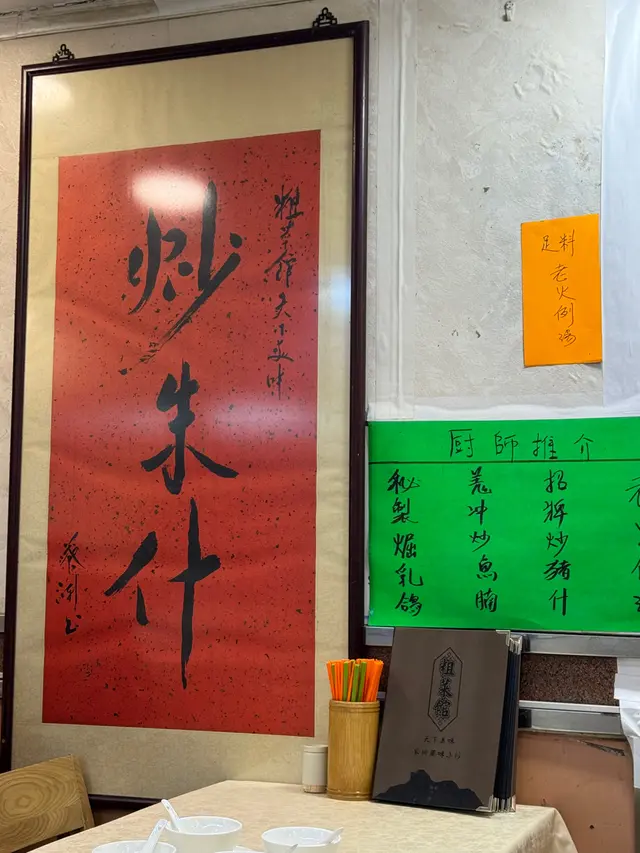 粗菜館天下美味
炒朱什
蔡瀾
足料
老火例湯
厨師推介
招牌炒豬什
冲炒魚腩
秘製焗乳鴿
粗菜館
天下美味